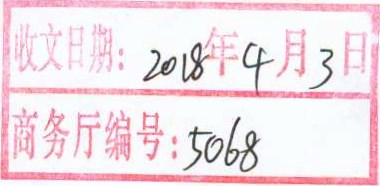 收文日期：2018年4月3日
商务厅编号：5068